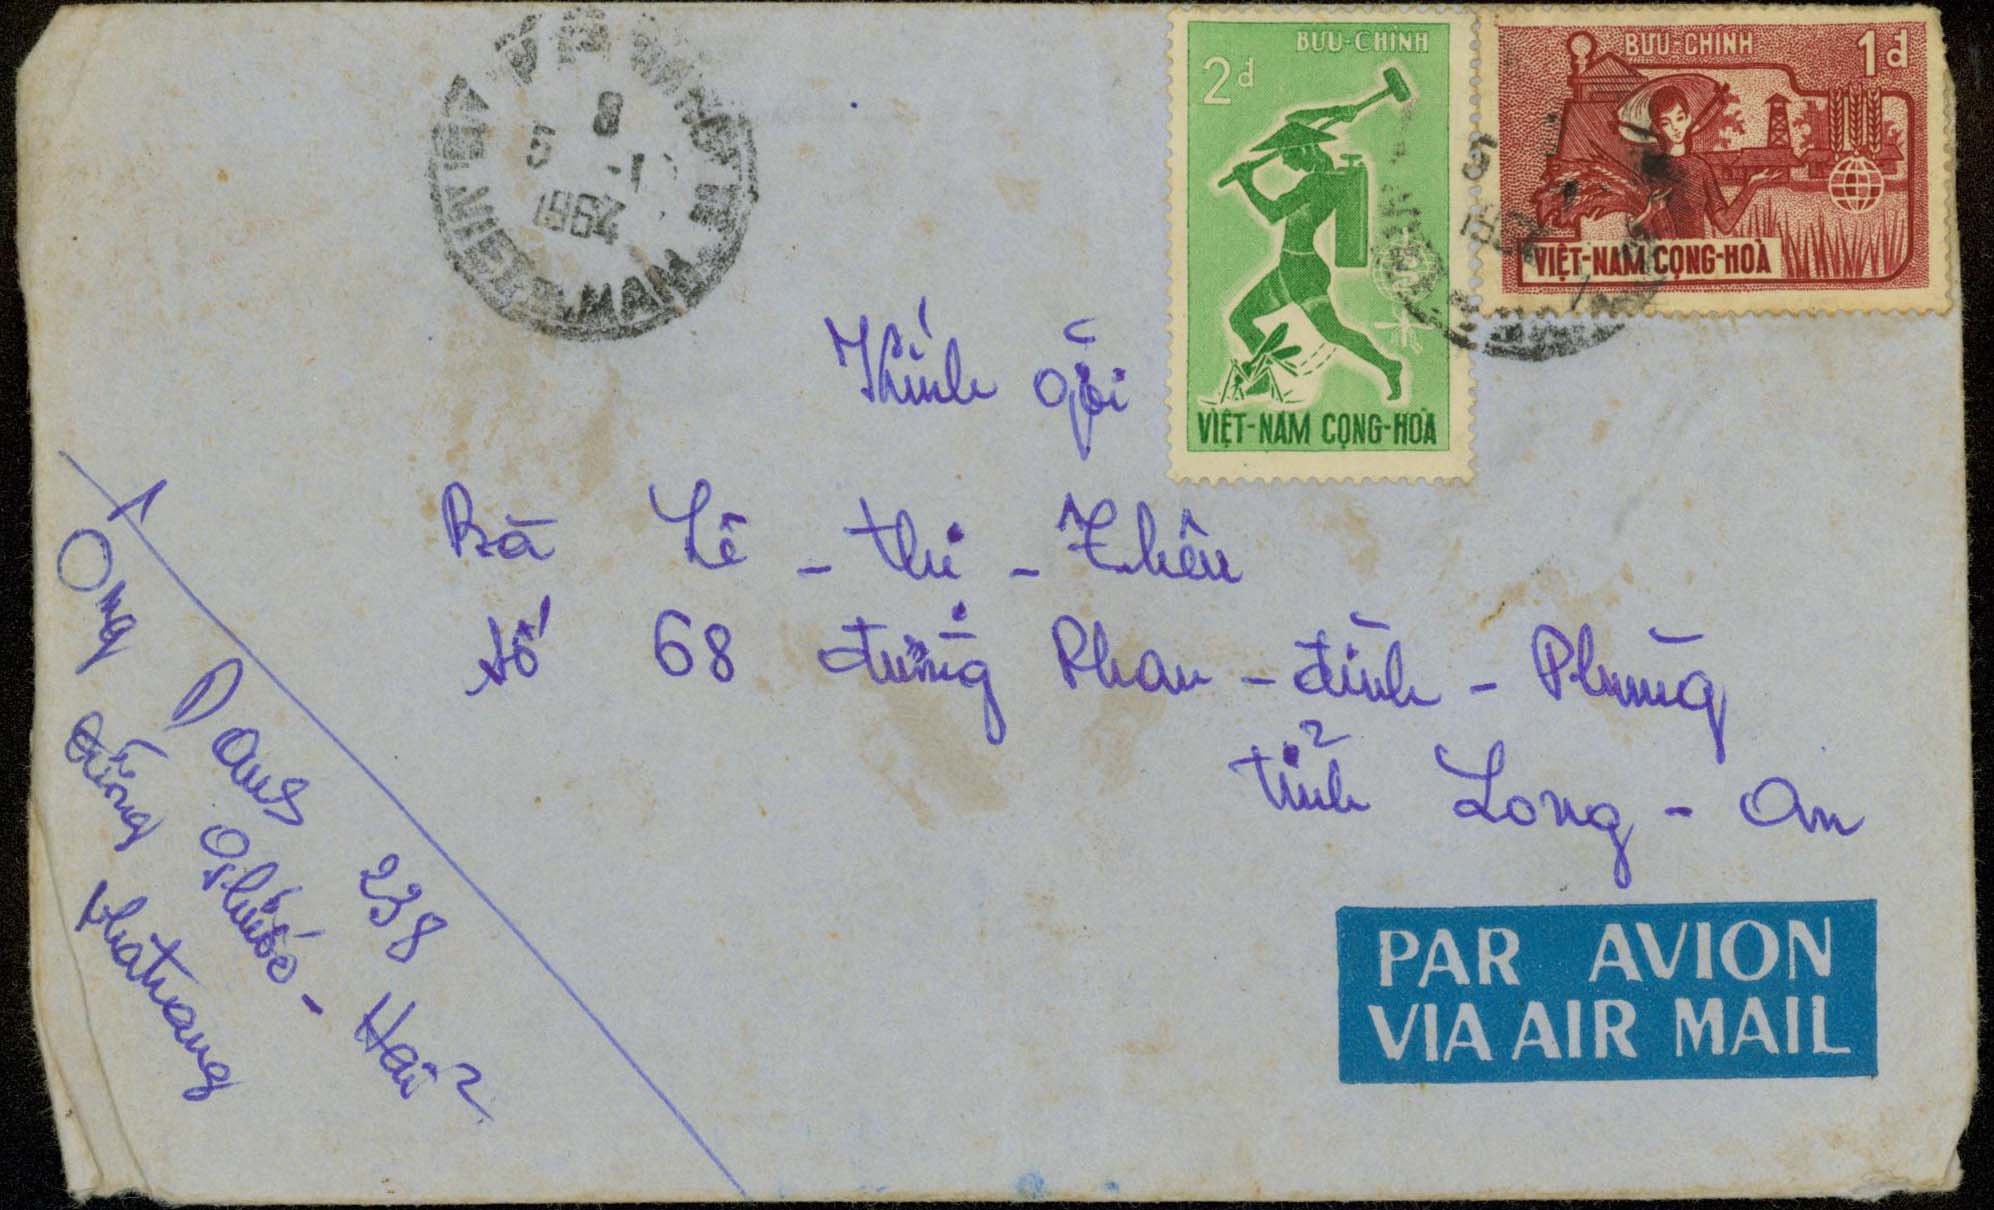 BƯU-CHÍNH
2đ
VIỆT-NAM CỘNG-HOÀ
BƯU-CHÍNH
1đ
VIỆT-NAM CỘNG-HOÀ
8
5 -1
1964
VIET-NAM
5
Kính gởi
Bà Lê - thị -
số 68 đường Phan - đình - Phùng
tỉnh Long - An
Ông Dans 238
đường Phước - Hải
Nhatrang
PAR AVION
VIA AIR MAIL